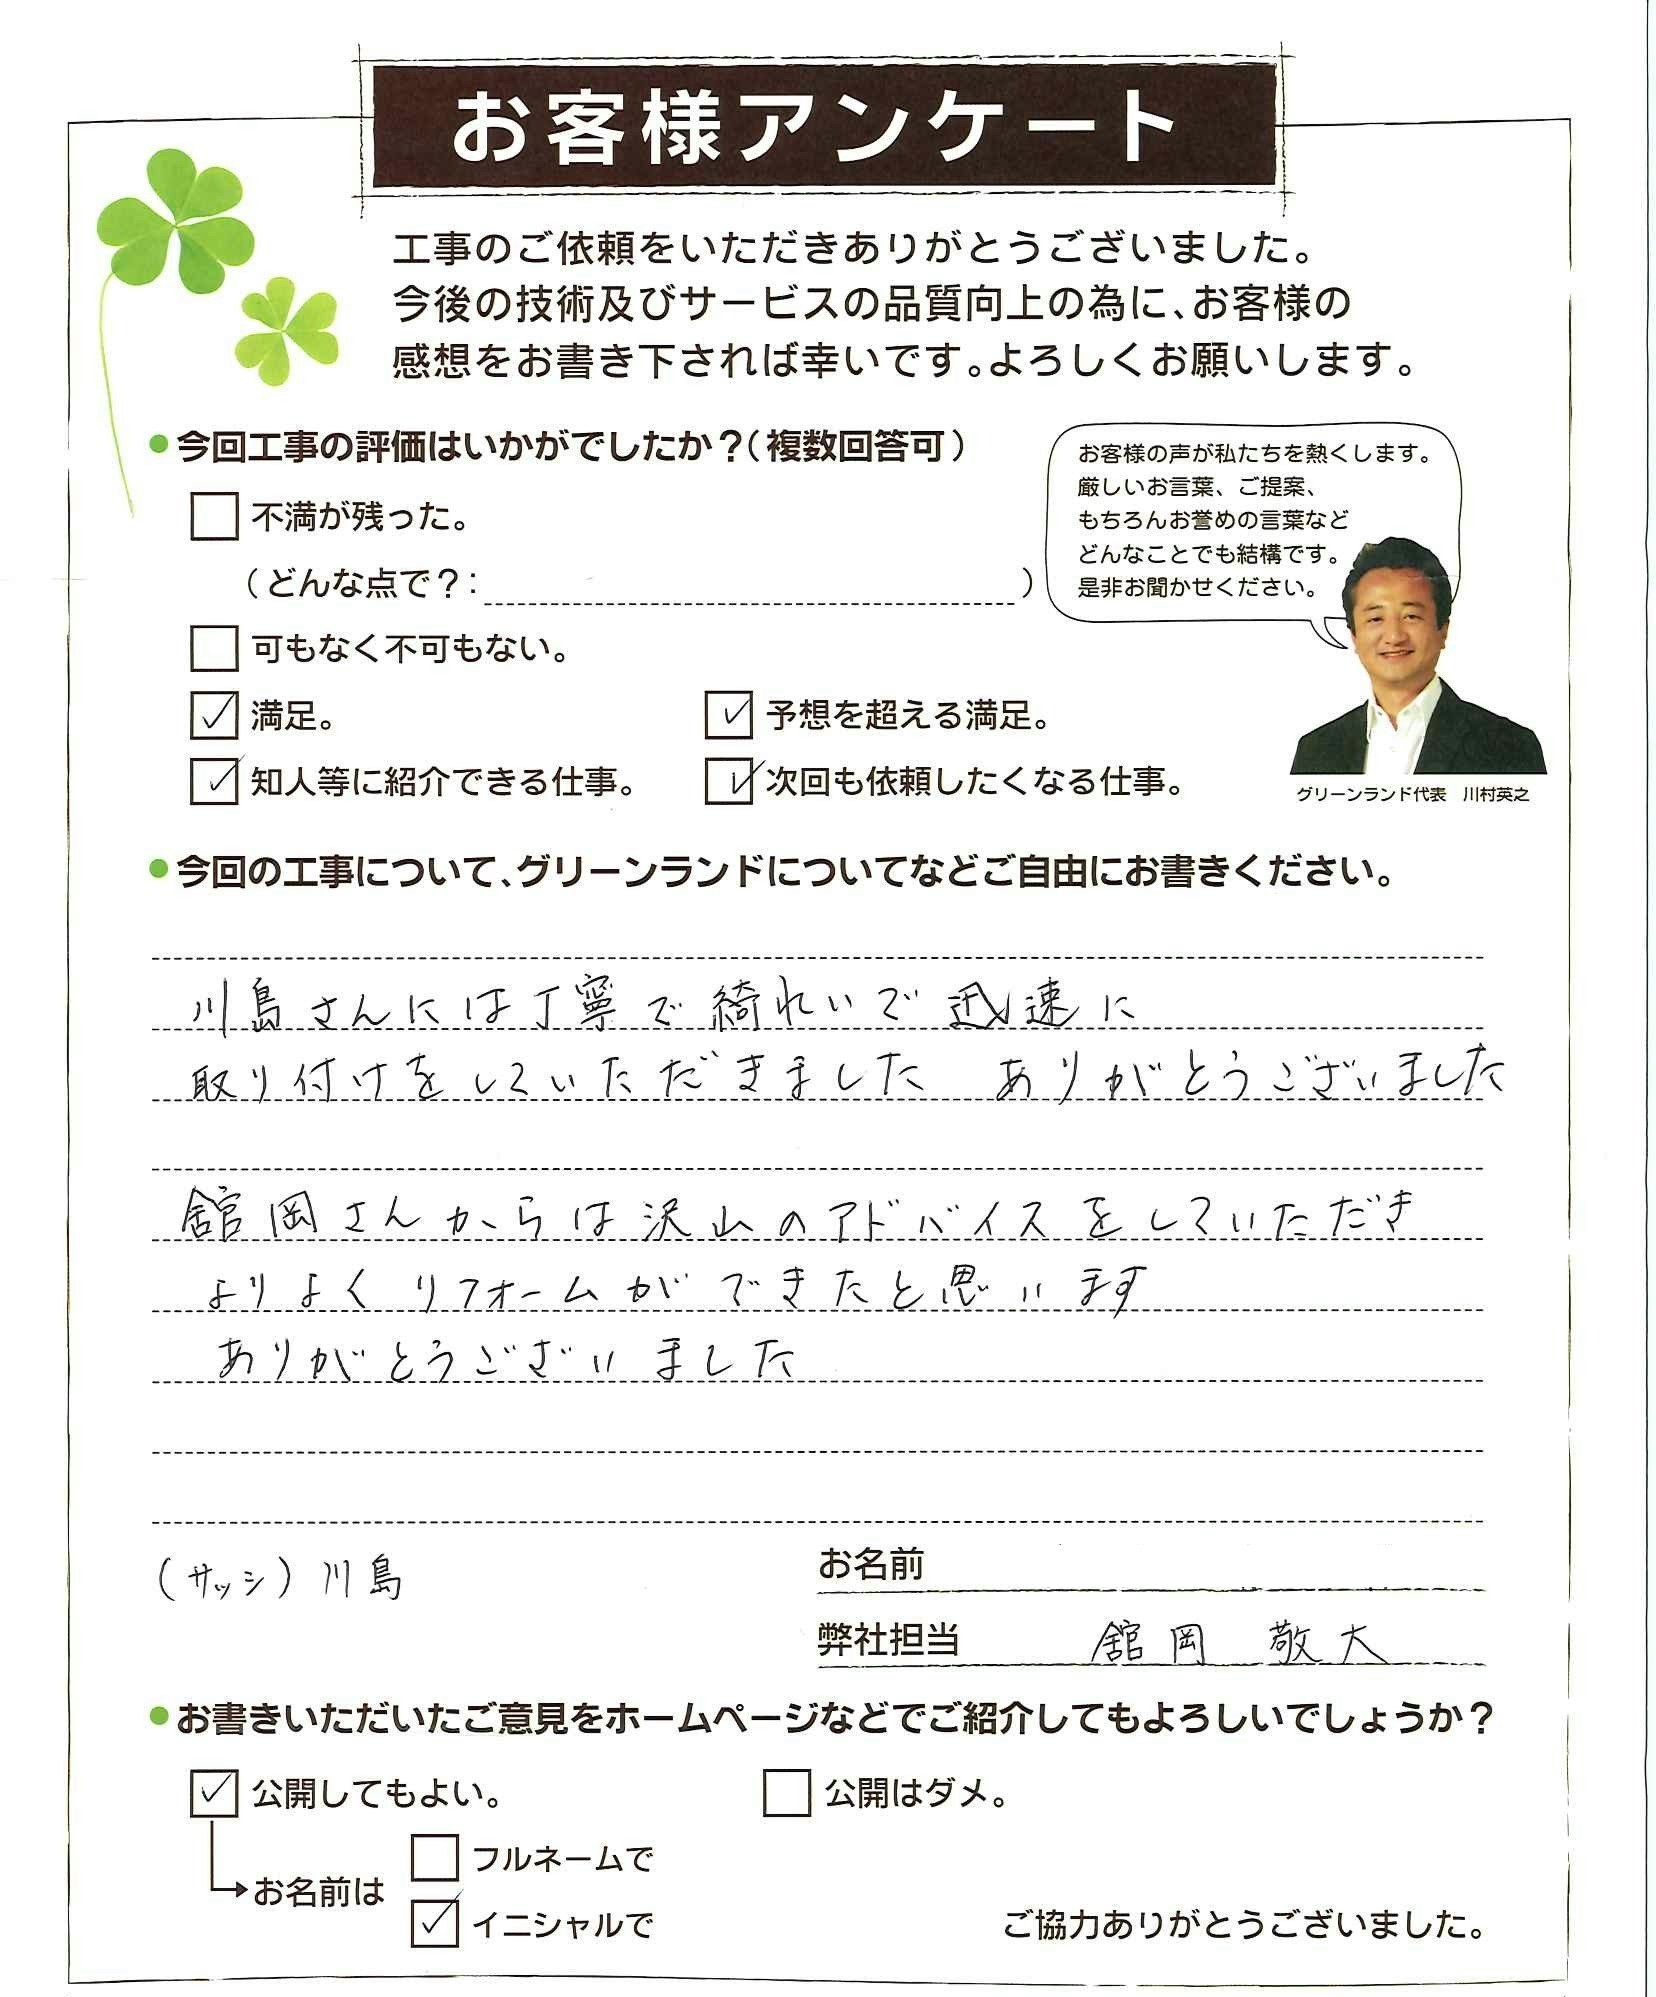 お客様アンケート
工事のご依頼をいただきありがとうございました。
今後の技術及びサービスの品質向上の為に、お客様の
感想をお書き下されば幸いです。よろしくお願いします。
●今回工事の評価はいかがでしたか?(複数回答可)
不満が残った。
(どんな点で?: )
可もなく不可もない。
✓ 満足。
✓ 予想を超える満足。
✓ 知人等に紹介できる仕事。
✓ 次回も依頼したくなる仕事。
お客様の声が私たちを熱くします。
厳しいお言葉、ご提案、
もちろんお誉めの言葉など
どんなことでも結構です。
是非お聞かせください。
グリーンランド代表 川村英之
●今回の工事について、グリーンランドについてなどご自由にお書きください。
川島さんには丁寧で綺れいで迅速に
取り付けをしていただきました ありがとうございました
舘岡さんからは沢山のアドバイスをしていただき
よりよくリフォームができたと思います
ありがとうございました
(サッシ) 川島
お名前
弊社担当 舘岡 敬大
●お書きいただいたご意見をホームページなどでご紹介してもよろしいでしょうか?
✓ 公開してもよい。
公開はダメ。
お名前は
フルネームで
✓ イニシャルで
ご協力ありがとうございました。